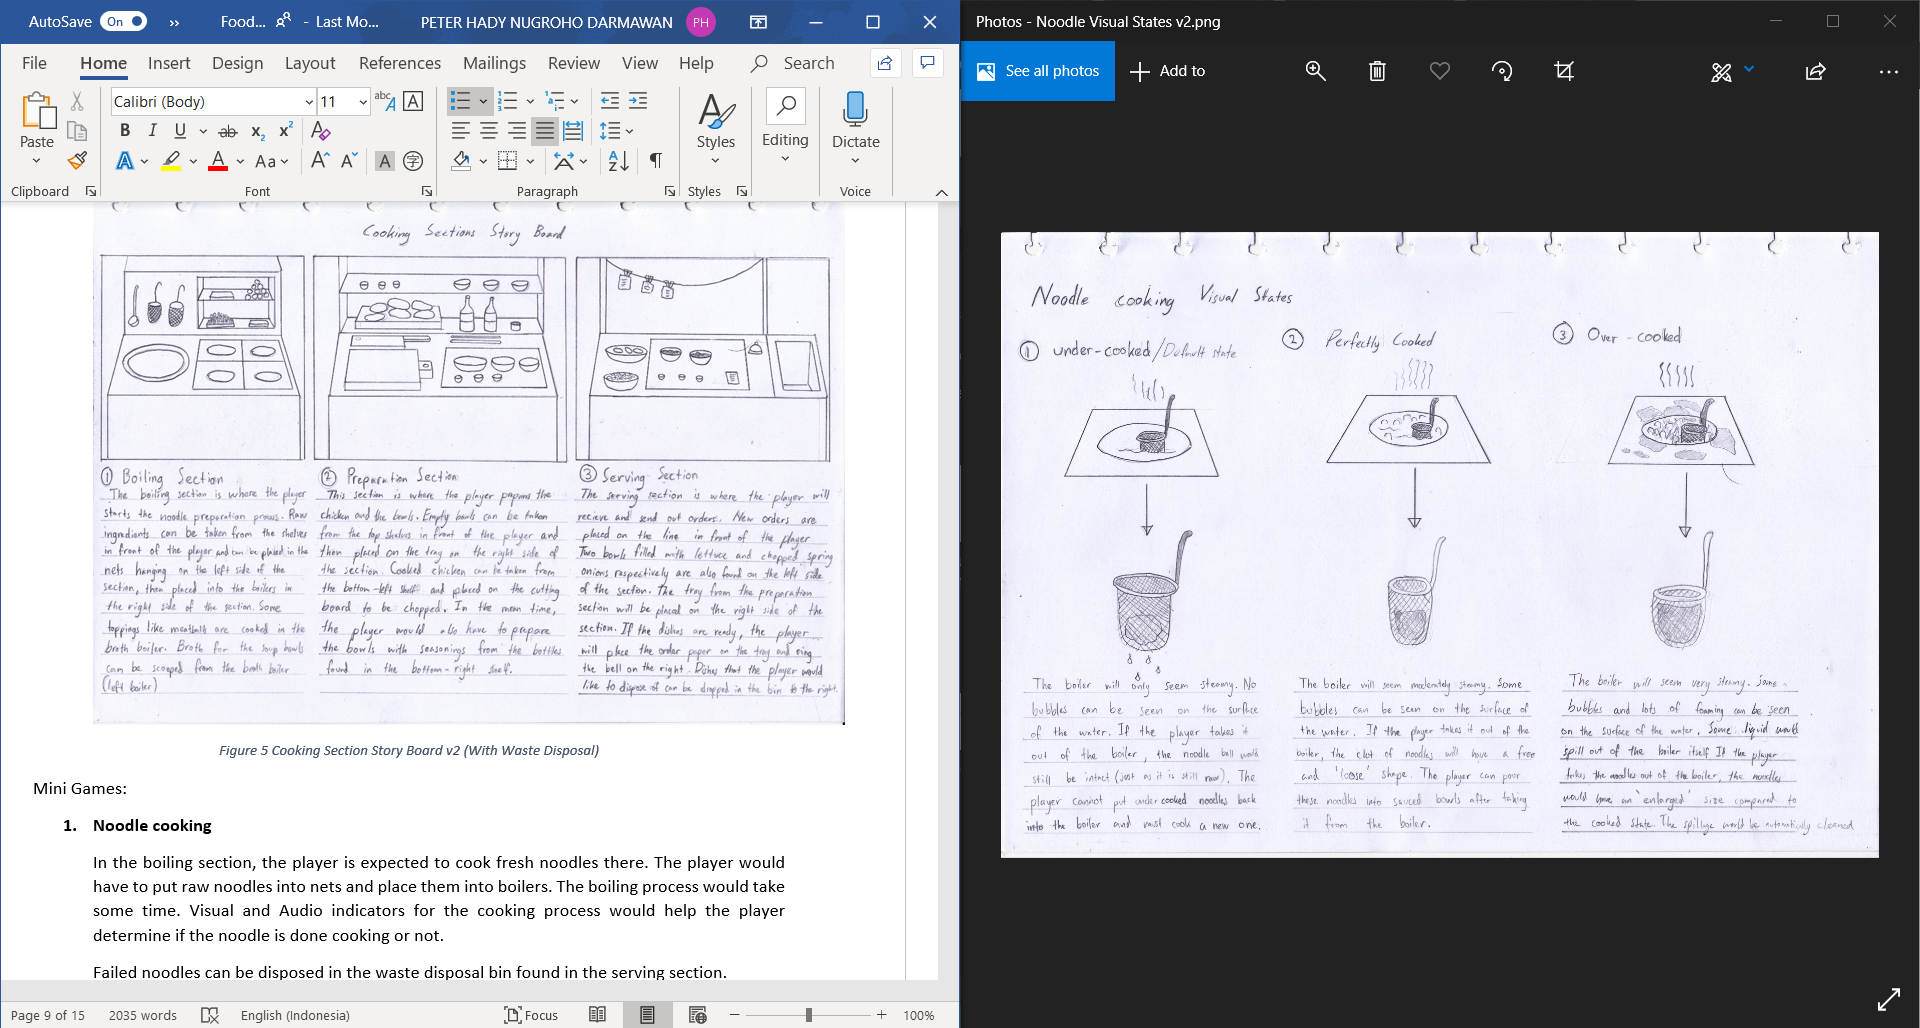 AutoSave On Food... - Last Mo... PETER HADY NUGROHO DARMAWAN PH
File Home Insert Design Layout References Mailings Review View Help Search
Calibri (Body) 11
Paste
Styles
Editing
Dictate
Clipboard Font Paragraph Styles Voice
Cooking Sections Story Board
① Boiling Section
The boiling section is where the player
starts the noodle preparation process. Raw
ingredients can be taken from the shelves
in front of the player and can be placed in the
nets hanging on the left side of the
section, then placed into the boilers in
the right side of the section. Some
toppings like meatballs are cooked in the
broth boiler. Broth for the soup bowls
can be scooped from the broth boiler
(left boiler)
② Preparation Section
This section is where the player prepares the
chicken and the bowls. Empty bowls can be taken
from the top shelves in front of the player and
then placed on the tray on the right side of
the section. Cooked chicken can be taken from
the bottom-left shelf and placed on the cutting
board to be chopped. In the mean time,
the player would also have to prepare
the bowls with seasonings from the bottles
found in the bottom-right shelf.
③ Serving Section
The serving section is where the player will
recieve and send out orders. New orders are
placed on the line in front of the player
Two bowls filled with lettuce and chopped spring
onions respectively are also found on the left side
of the section. The tray from the preparation
section will be placed on the right side of the
section. If the dishes are ready, the player
will place the order paper on the tray and ring
the bell on the right. Dishes that the player would
like to dispose of can be dropped in the bin to the right.
Figure 5 Cooking Section Story Board v2 (With Waste Disposal)
Mini Games:
1. Noodle cooking
In the boiling section, the player is expected to cook fresh noodles there. The player would
have to put raw noodles into nets and place them into boilers. The boiling process would take
some time. Visual and Audio indicators for the cooking process would help the player
determine if the noodle is done cooking or not.
Failed noodles can be disposed in the waste disposal bin found in the serving section.
Page 9 of 15 2035 words English (Indonesia) Focus 100%
Photos - Noodle Visual States v2.png
See all photos Add to
Noodle cooking Visual States
① under-cooked/Default state
② Perfectly Cooked
③ Over-cooked
The boiler will only seem steamy. No
bubbles can be seen on the surface
of the water. If the player takes it
out of the boiler, the noodle ball would
still be intact (just as it is still raw). The
player cannot put undercooked noodles back
into the boiler and must cook a new one.
The boiler will seem moderately steamy. Some
bubbles can be seen on the surface of
the water. If the player takes it out of the
boiler, the clot of noodles will have a free
and 'loose' shape. The player can pour
these noodles into sauced bowls after taking
it from the boiler.
The boiler will seem very steamy. Some
bubbles and lots of foaming can be seen
on the surface of the water. Some liquid would
spill out of the boiler itself If the player
takes the noodles out of the boiler, the noodles
would have an 'enlarged' size compared to
the cooked state. The spillage would be automatically cleaned